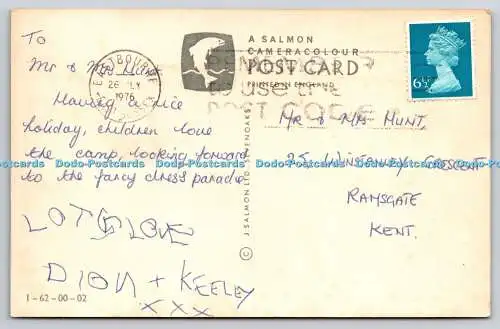 To
Mr & Mrs Hunt
Having a nice
holiday, children love
the camp, looking forward
to the fancy dress paradie
LOTS LOVE
DION + KEELEY
XXX
1-62-00-02
EASTBOURNE
26 JLY
1976
A SALMON
CAMERACOLOUR
POST CARD
PRINTED IN ENGLAND
REMEMBER
to use the
POST CODE
© J. SALMON LTD. SEVENOAKS
6½P
MR & MRS HUNT,
25 WINSTANLEY CRESCENT
RAMSGATE
KENT.
Dodo-Postcards Dodo-Postcards Dodo-Postcards Dodo-Postcards